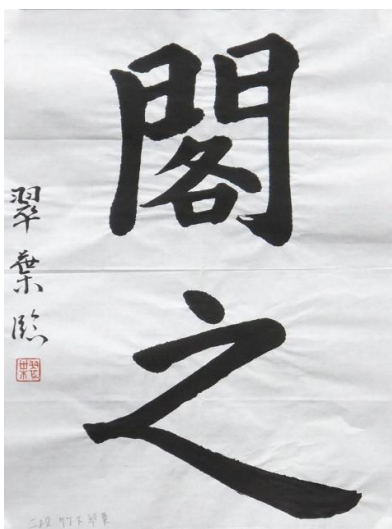 閣之
翠葉臨